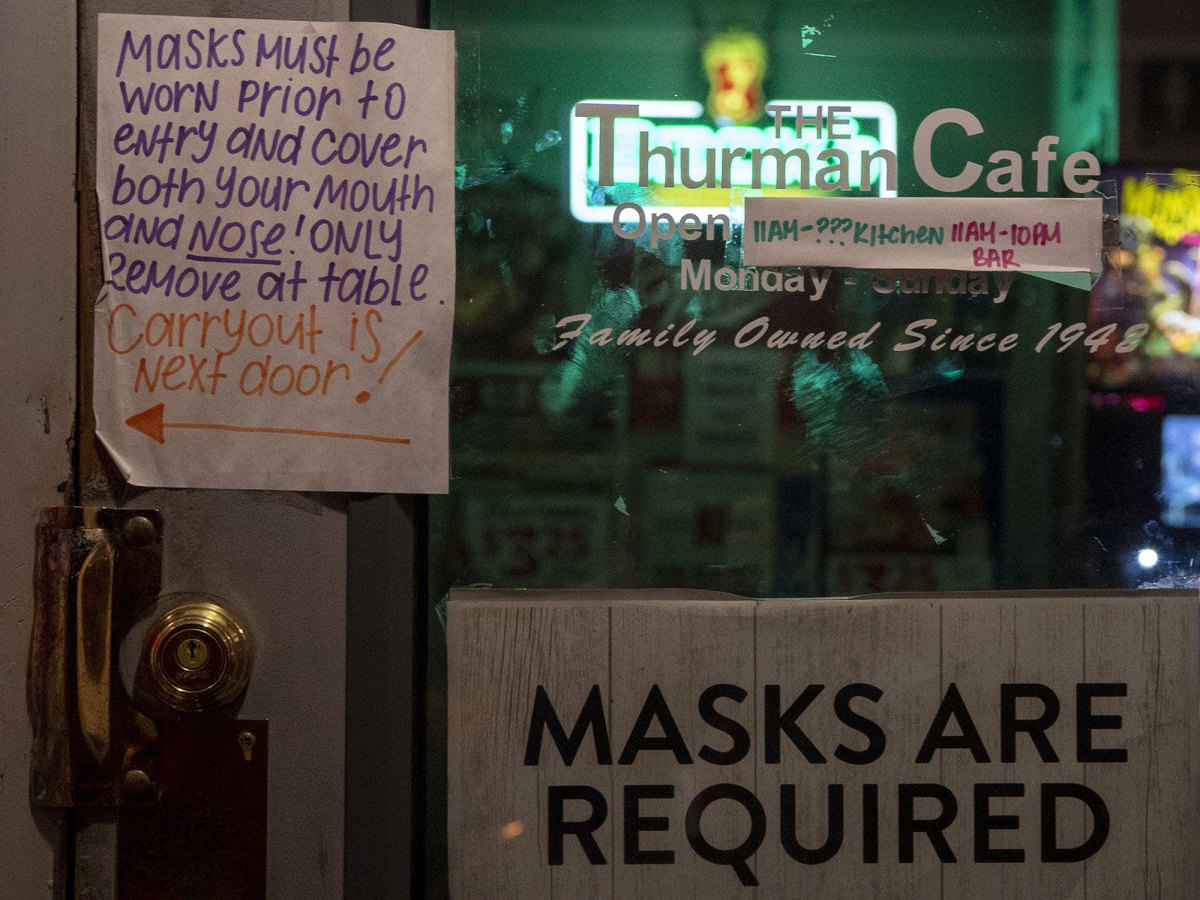 Masks must be
worn prior to
entry and cover
both your mouth
and Nose! ONLY
Remove at table.
Carryout is
Next door!
THE
Thurman Cafe
Open 11AM-??? Kitchen 11AM-10PM
BAR
Monday - Sunday
Family Owned Since 1942
MASKS ARE
REQUIRED